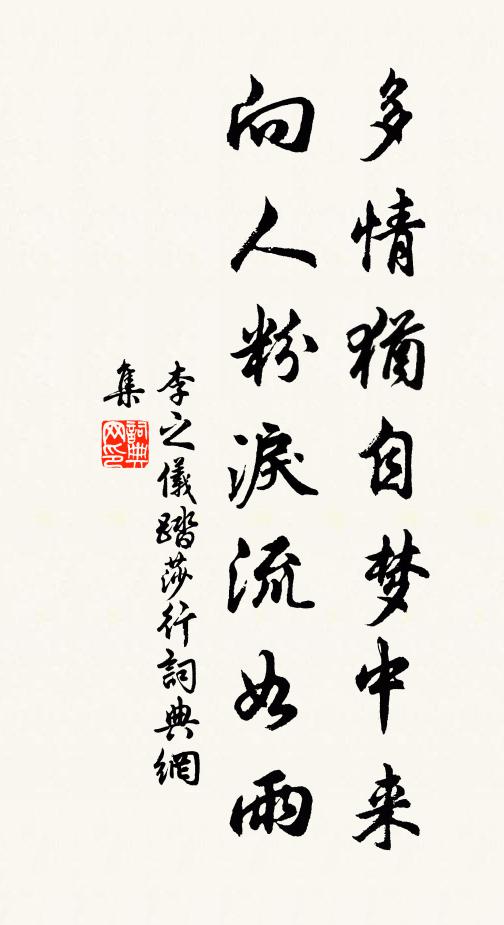 多情猶自梦中来
向人粉淚流如雨
李之儀踏莎行詞典網
集
詞典
网印